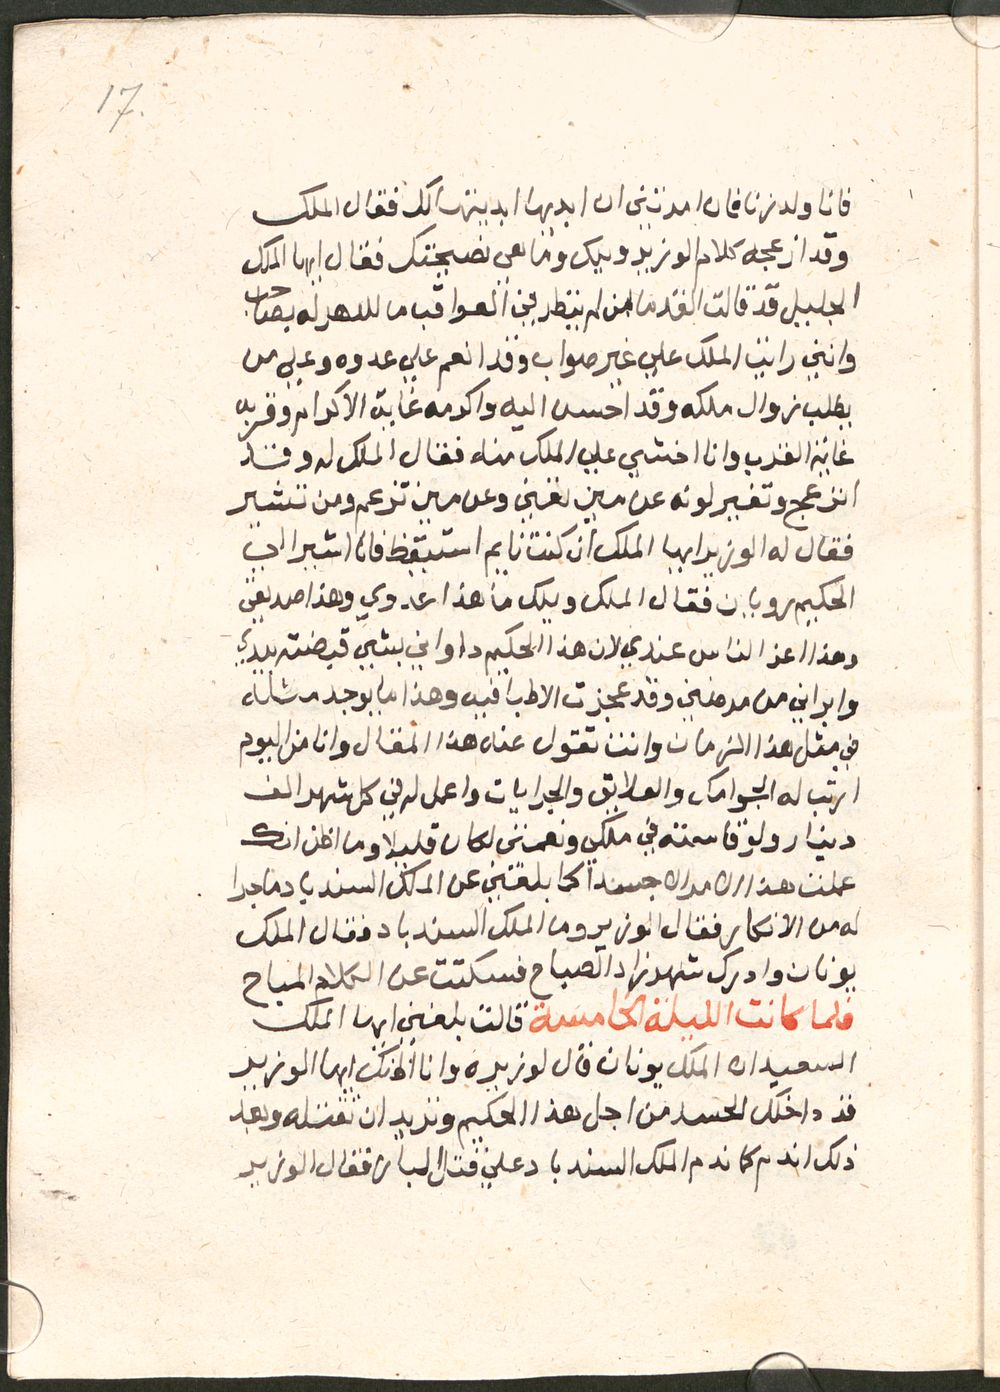 17.
فانا ولد زنا فان امرتني ان ابديها ابديتها لك فقال الملك
وقد ازعجه كلام الوزير ويلك وما هي نصيحتك فقال ايها الملك
الجليل قد قالت القدما من لم ينظر في العواقب ما الدهر له بصاحب
واني رايت الملك علي غير صواب وقد انعم علي عدوه وعلي من
يطلب زوال ملكه وقد احسن اليه واكرمه غاية الاكرام وقربه
غاية القرب وانا اخشي علي الملك منه فقال الملك له وقد
انزعج وتغير لونه عن مين تعني وعن مين تزعم ومن تشير
فقال له الوزير ايها الملك ان كنت نايم استيقظ فانا اشير الي
الحكيم رويان فقال الملك ويلك ما هذا عدوي وهذا صديقي
وهذا اعز الناس عندي لان هذا الحكيم داواني بشي قبضته بيدي
وابراني من مرضي وقد عجزت الاطبا فيه وهذا ما يوجد مثله
في مثل هذا الزمان وانت تقول عنه هذا المقال وانا من اليوم
ارتب له الجوامك والعلايق والجرايات واعمل له في كل شهر الف
دينار ولو قاسمته في ملكي ونعمتي لكان قليلا وما اظن انك
عملت هذا الامر الا حسدا كما بلغني عن الملك السندباد ما جرا
له من الانكار فقال الوزير وما الملك السندباد فقال الملك
يونان وادرك شهرزاد الصباح فسكتت عن الكلام المباح
فلما كانت الليلة الخامسة قالت بلغني ايها الملك
السعيد ان الملك يونان قال لوزيره وانا اظنك ايها الوزير
قد داخلك الحسد من اجل هذا الحكيم وتريد ان تقتله وبعد
ذلك اندم كما ندم الملك السندباد علي قتل الباز فقال الوزير